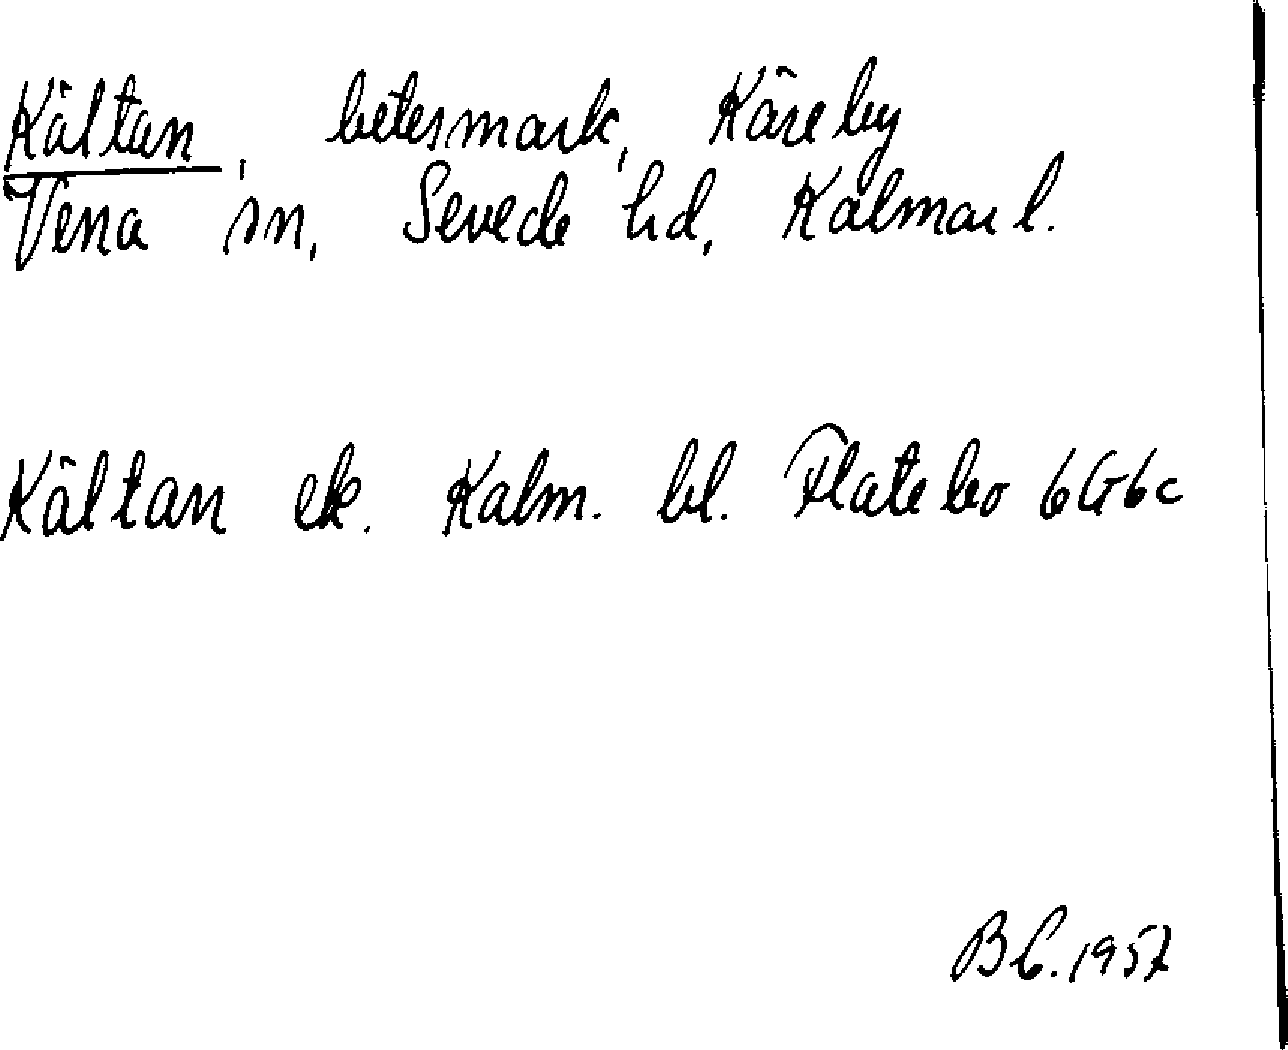 Kältan, betesmark, Käreby
Vena sn, Sevede hd, Kalmar l.
Kältan ek. Kalm. bl. Flatebo 6G6c
B C. 1957